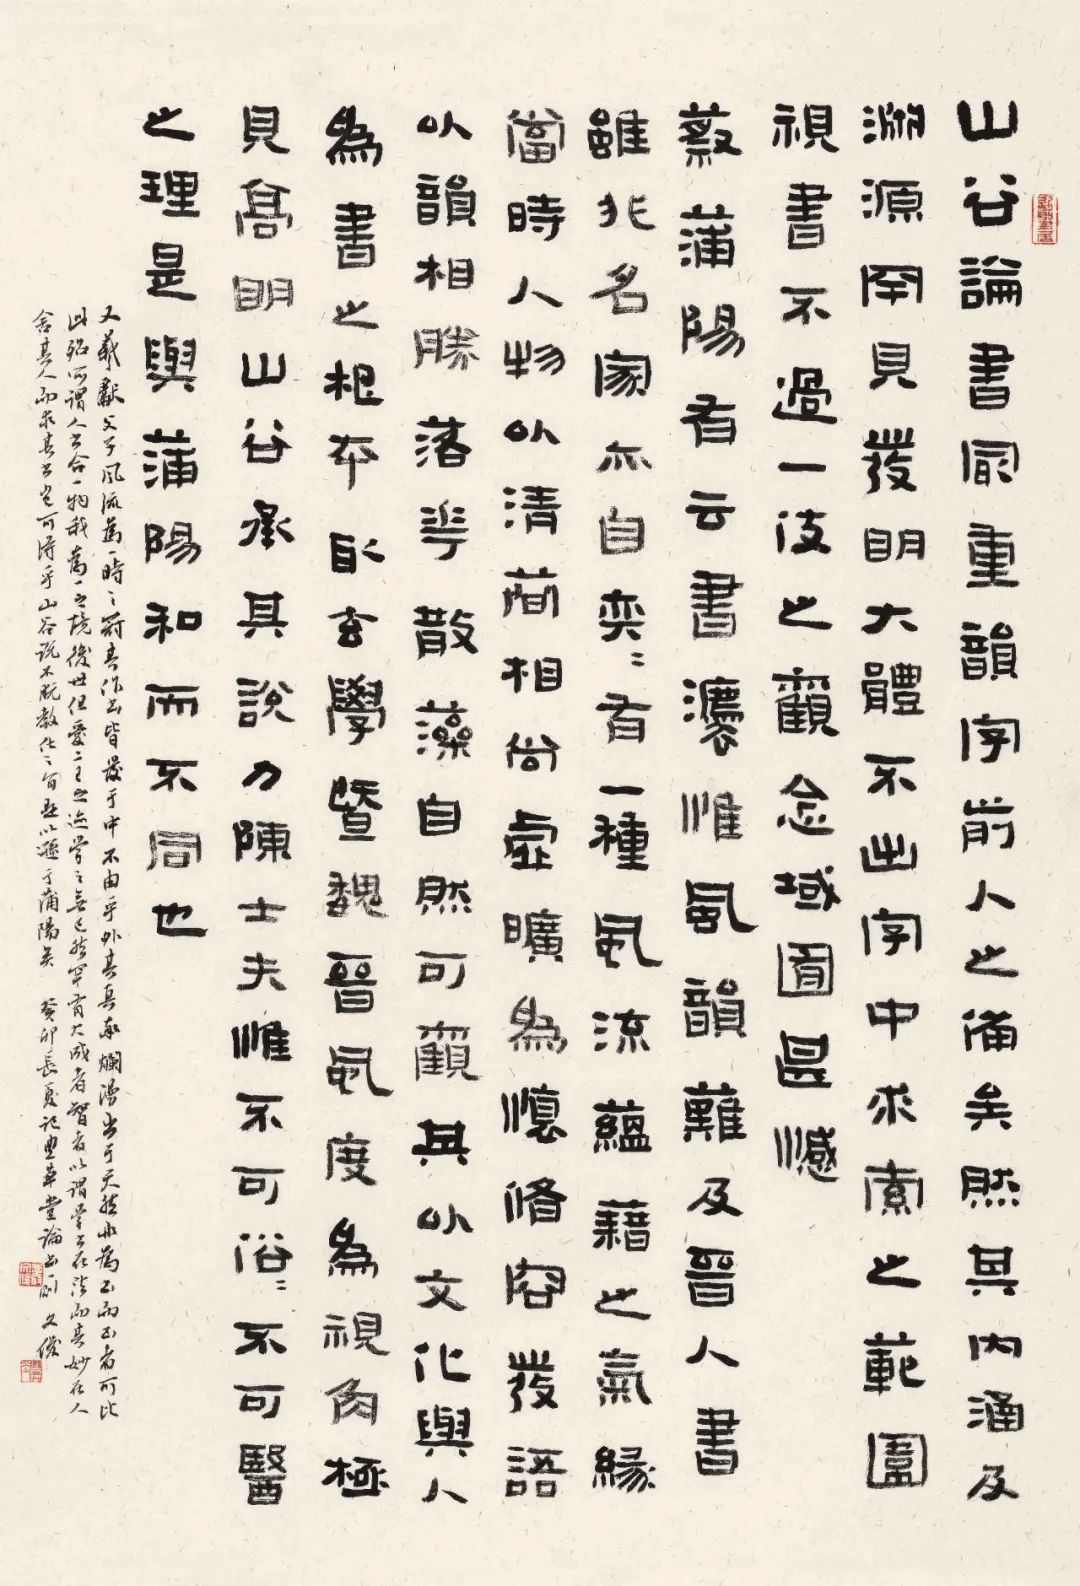 山谷論書最重韻字前人之備矣然其内涵及
淵源罕見發明大體不出字中求索之範圍
視書不過一伎之觀念域囿甚憾
蔡蒲陽有云書法惟風韻難及晉人書
雖非名家亦自奕〻有一種風流蘊藉之氣緣
當時人物以清簡相尚虛曠為懷脩容發語
以韻相勝落華散藻自然可觀其以文化與人
為書之根本取玄學暨魏晉風度為視角極
見高明山谷承其說乃陳士夫惟不可俗〻不可醫
之理是與蒲陽和而不同也
又羲獻父子風流為一時之冠其作書皆發于中不由乎外其真氣爛漫出于天然非為書而書者可比
此殆所謂人書合一物我為一之境後世但愛二王之迹學之無已然罕有大成者智者以謂學書在法而其妙在人
舍其人而求其書豈可得乎山谷說不脫教化之旨是以遜于蒲陽矣 癸卯長夏記 草堂論書一則 文俊